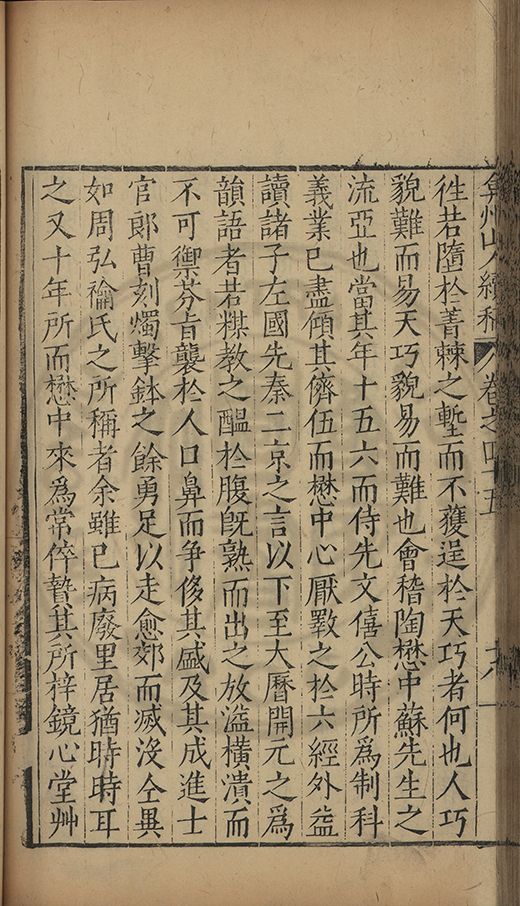 弇州山人續稿 卷之四五
徃若墮於菁棘之塹而不獲逞於天巧者何也人巧
貌難而易天巧貌易而難也會稽陶懋中蘇先生之
流亞也當其年十五六而侍先文僖公時所爲制科
義業已盡傾其儕伍而懋中心厭斁之於六經外益
讀諸子左國先秦二京之言以下至大曆開元之爲
韻語者若教之醞於腹旣熟而出之放溢橫潰而
不可禦芬旨襲於人口鼻而爭侈其盛及其成進士
官郞曹刻燭擊鉢之餘勇足以走愈郊而滅没仝異
如周弘禴氏之所稱者余雖已病廢里居猶時時耳
之又十年所而懋中來爲常倅贄其所梓鏡心堂艸